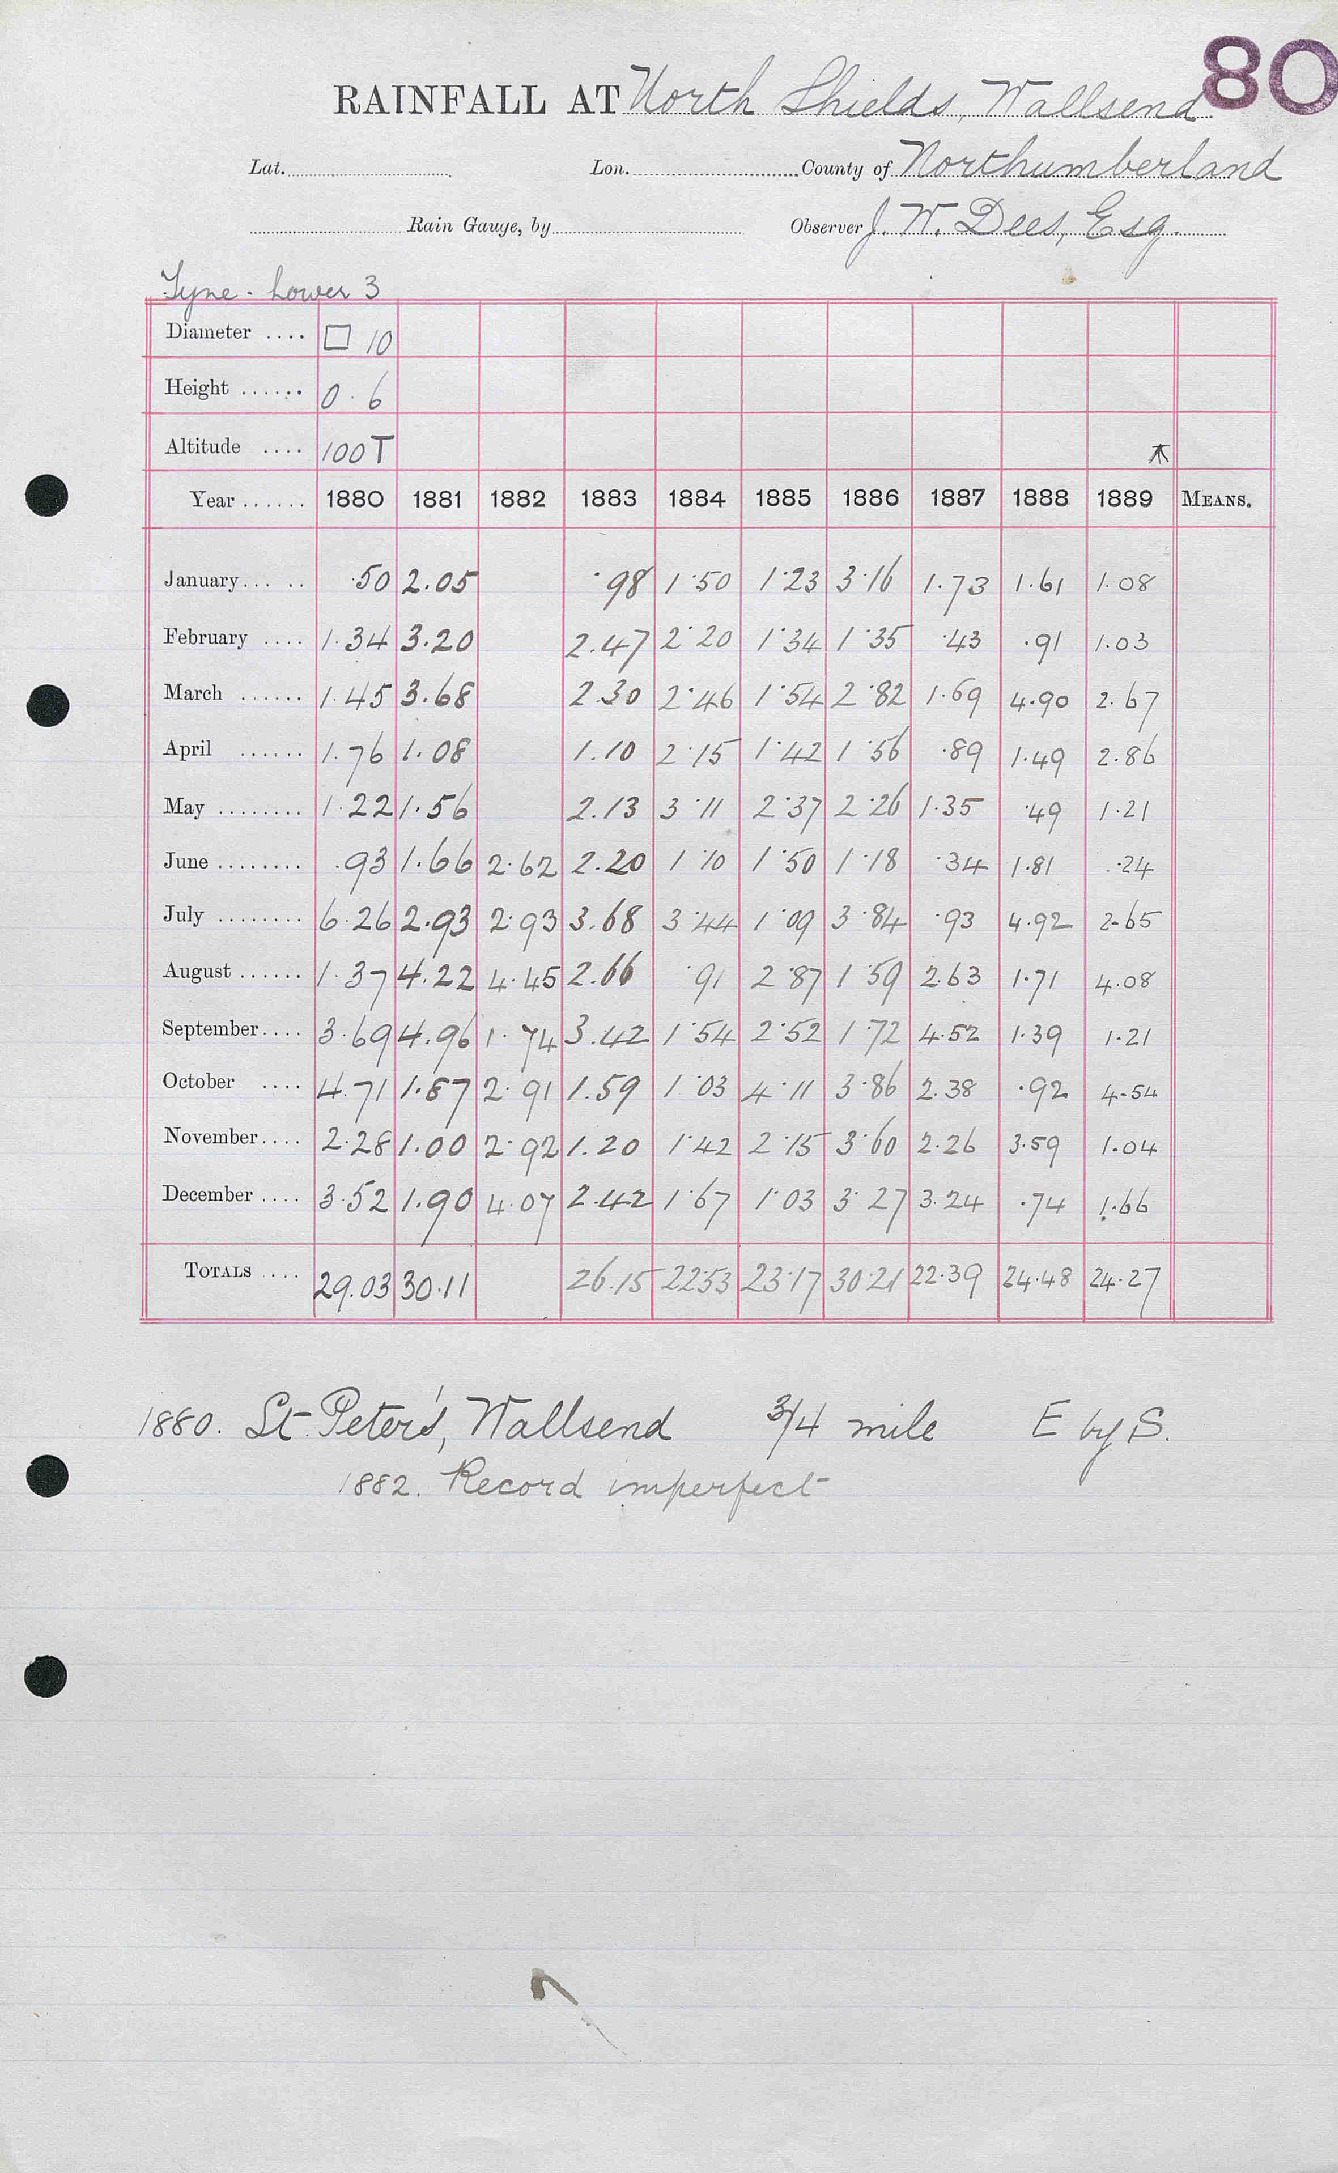 80
RAINFALL AT North Shields, Wallsend
Lat. Lon. County of Northumberland
Rain Gauge, by Observer J. W. Dees, Esq.
Tyne - Lower 3
Diameter .... □ 10
Height ...... 0.6
Altitude .... 100 T
Year ...... 1880 1881 1882 1883 1884 1885 1886 1887 1888 1889 MEANS.
January... .. .50 2.05 .98 1.50 1.23 3.16 1.73 1.61 1.08
February .... 1.34 3.20 2.47 2.20 1.34 1.35 .43 .91 1.03
March ...... 1.45 3.68 2.30 2.46 1.54 2.82 1.69 4.90 2.67
April ...... 1.76 1.08 1.10 2.15 1.42 1.56 .89 1.49 2.86
May ........ 1.22 1.56 2.13 3.11 2.37 2.26 1.35 .49 1.21
June ........ .93 1.66 2.62 2.20 1.10 1.50 1.18 .34 1.81 .24
July ........ 6.26 2.93 2.93 3.68 3.44 1.09 3.84 .93 4.92 2.65
August ...... 1.37 4.22 4.45 2.66 .91 2.87 1.59 2.63 1.71 4.08
September.... 3.69 4.96 1.74 3.42 1.54 2.52 1.72 4.52 1.39 1.21
October .... 4.71 1.87 2.91 1.59 1.03 4.11 3.86 2.38 .92 4.54
November.... 2.28 1.00 2.92 1.20 1.42 2.15 3.60 2.26 3.59 1.04
December .... 3.52 1.90 4.07 2.42 1.67 1.03 3.27 3.24 .74 1.66
TOTALS .... 29.03 30.11 26.15 22.53 23.17 30.21 22.39 24.48 24.27
1880. St. Peter's, Wallsend 3/4 mile E by S.
1882. Record imperfect